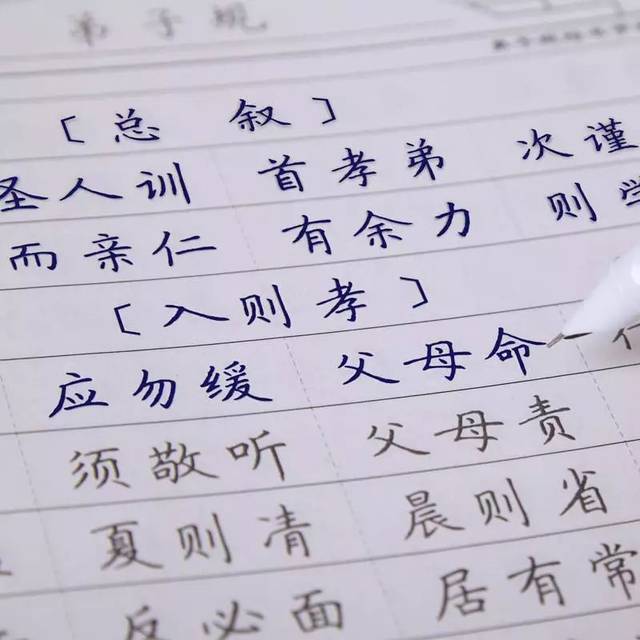 弟子规
〔总 叙〕
圣人训 首孝弟 次谨
而亲仁 有余力 则学
〔入则孝〕
应勿缓 父母命
须敬听 父母责
夏则凊 晨则省
反必面 居有常